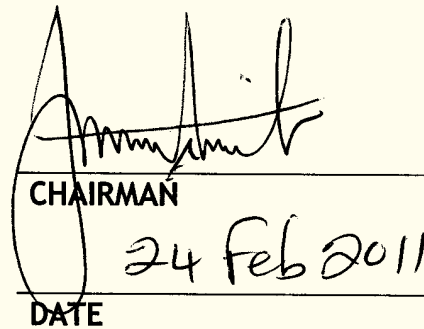 CHAIRMAN
24 Feb 2011
DATE